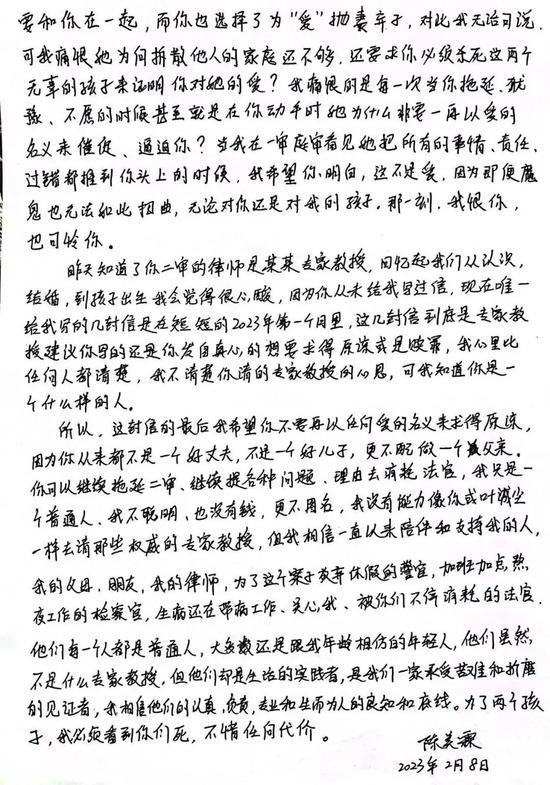 要和你在一起，而你也选择了为“爱”抛妻弃子，对此我无话可说，
可我痛恨她为何拆散他人的家庭还不够，还要求你必须杀死这两个
无辜的孩子来证明你对她的爱？我痛恨的是每一次当你拖延、犹
豫、不愿的时候甚至就是在你动手时她为什么非要一再以爱的
名义来催促、逼迫你？当我在一审庭审看见她把所有的事情、责任、
过错都推到你头上的时候，我希望你明白，这不是爱，因为即便魔
鬼也无法如此扭曲，无论对你还是对我的孩子，那一刻，我恨你，
也可怜你。
昨天知道了你二审的律师是某某专家教授，回忆起我们从认识，
结婚，到孩子出生我会觉得很心酸，因为你从未给我写过信，现在唯一
给我写的几封信是在短短的2023年第一个月里，这几封信到底是专家教
授建议你写的还是你发自真心的想要求得原谅或是赎罪，我心里比
任何人都清楚，我不清楚你请的专家教授的心思，可我知道你是一
个什么样的人。
所以，这封信的最后我希望你不要再以任何爱的名义来求得原谅，
因为你从来都不是一个好丈夫，不是一个好儿子，更不配做一个父亲。
你可以继续拖延二审、继续提各种问题、理由去消耗法官，我只是一
个普通人、我不聪明、也没有钱，更不用名，我没有能力像你或叶诚尘
一样去请那些权威的专家教授，但我相信一直以来陪伴和支持我的人，
我的父母、朋友，我的律师，为了这个案子放弃休假的警官，加班加点，熬
夜工作的检察官，生病还在带病工作、关心我、被你们不停消耗的法官，
他们每一个人都是普通人，大多数还是跟我年龄相仿的年轻人，他们虽然
不是什么专家教授，但他们却是生活的实践者，是我们一家承受苦难和折磨
的见证者，我相信他们的认真、负责，专业和生而为人的良知和底线。为了两个孩
子，我必须看到你们死，不惜任何代价。
陈美霖
2023年2月8日